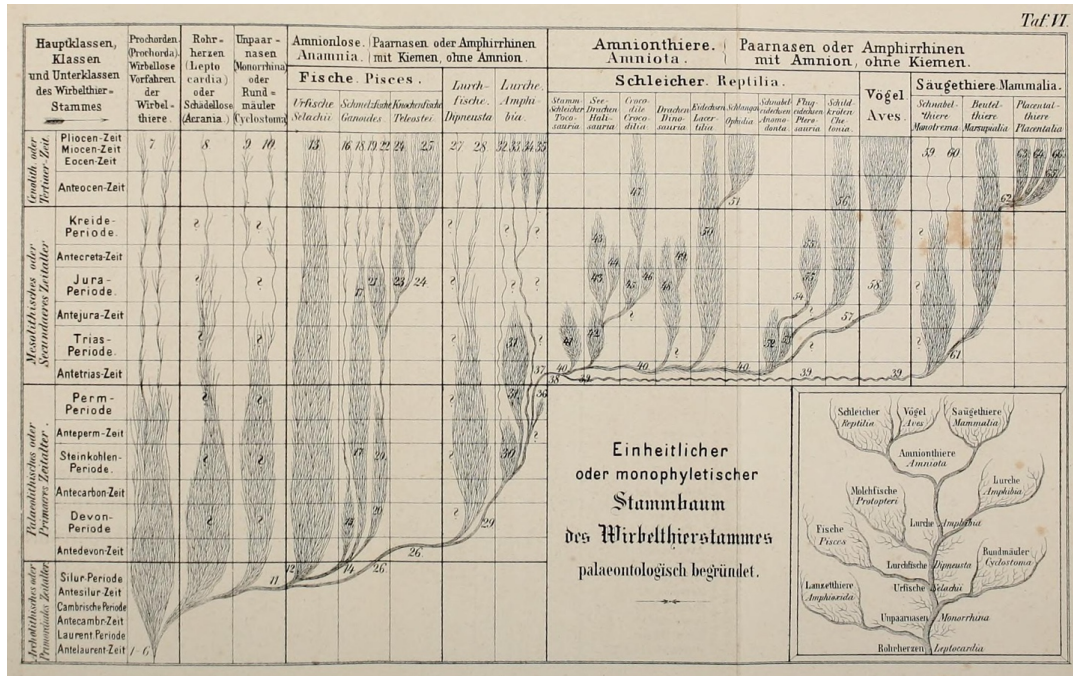 Taf. VI.
Hauptklassen,
Klassen
und Unterklassen
des Wirbelthier=
Stammes
Prochorden
(Prochorda)
Wirbellose
Vorfahren
der
Wirbel=
thiere.
Rohr=
herzen
(Lepto
cardia)
oder
Schädellose
(Acrania)
Unpaar=
nasen
(Monorrhina)
oder
Rund=
mäuler
(Cyclostoma)
Amnionlose.
Anamnia.
Paarnasen oder Amphirrhinen
mit Kiemen, ohne Amnion.
Fische. Pisces.
Urfische
Selachii
Schmelzfische
Ganoides
Knochenfische
Teleostei
Lurch-
fische.
Dipneusta
Lurche.
Amphi-
bia.
Amnionthiere.
Amniota.
Paarnasen oder Amphirhinen
mit Amnion, ohne Kiemen.
Schleicher. Reptilia.
Stamm-
Schleicher
Toco-
sauria
See-
Drachen
Hali-
sauria
Croco-
dile
Croco-
dilia
Drachen
Dino-
sauria
Eidechsen
Lacer-
tilia
Schlangen
Ophidia
Schnabel-
eidechsen
Anomo-
donta
Flug-
eidechsen
Ptero-
sauria
Schild-
kröten
Che-
lonia.
Vögel
Aves.
Säugethiere. Mammalia.
Schnabel-
thiere
Monotrema
Beutel-
thiere
Marsupialia
Placental-
thiere
Placentalia
Cenolith. oder
Tertiaer-Zeit.
Pliocen-Zeit
Miocen-Zeit
Eocen-Zeit
Anteocen-Zeit
7 8 9 10 13 16 18 19 22 24 25 27 28 32 33 34 35
47 51 56 59 60 62 63 64 65 66
Mesolithisches oder
Secundaeres Zeitalter
Kreide-
Periode.
Antecreta-Zeit
Jura-
Periode.
Antejura-Zeit
Trias-
Periode.
Antetrias-Zeit
17 21 23 24 31 37
43 44 45 45 46 48 49 50 53 54 55 57 58
41 42 52 61
38 40 39 40 40 39 39
Palaeolithisches oder
Primaeres Zeitalter.
Perm-
Periode
Anteperm-Zeit
Steinkohlen-
Periode.
Antecarbon-Zeit
Devon-
Periode
Antedevon-Zeit
17 20 20 26 29 30 31 36
Archolithisches oder
Primordiales Zeitalter
Silur-Periode
Antesilur-Zeit
Cambrische Periode
Antecambr-Zeit
Laurent. Periode
Antelaurent-Zeit
1-6 11 12 14 26
Einheitlicher
oder monophyletischer
Stammbaum
des Wirbelthierstammes
palaeontologisch begründet.
Schleicher
Reptilia
Vögel
Aves
Saügethiere
Mammalia
Amnionthiere
Amniota
Lurche
Amphibia
Molchfische
Protopteri
Lurche Amphibia
Fische
Pisces
Rundmäuler
Cyclostoma
Lurchfische Dipneusta
Lanzetthiere
Amphioxida
Urfische Selachii
Unpaarnasen Monorrhina
Rohrherzen Leptocardia